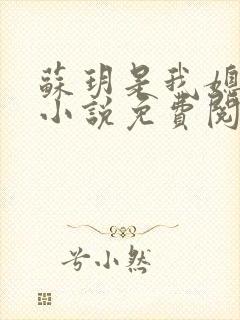 蘇玥是我媳
小說免費閱
兮小然